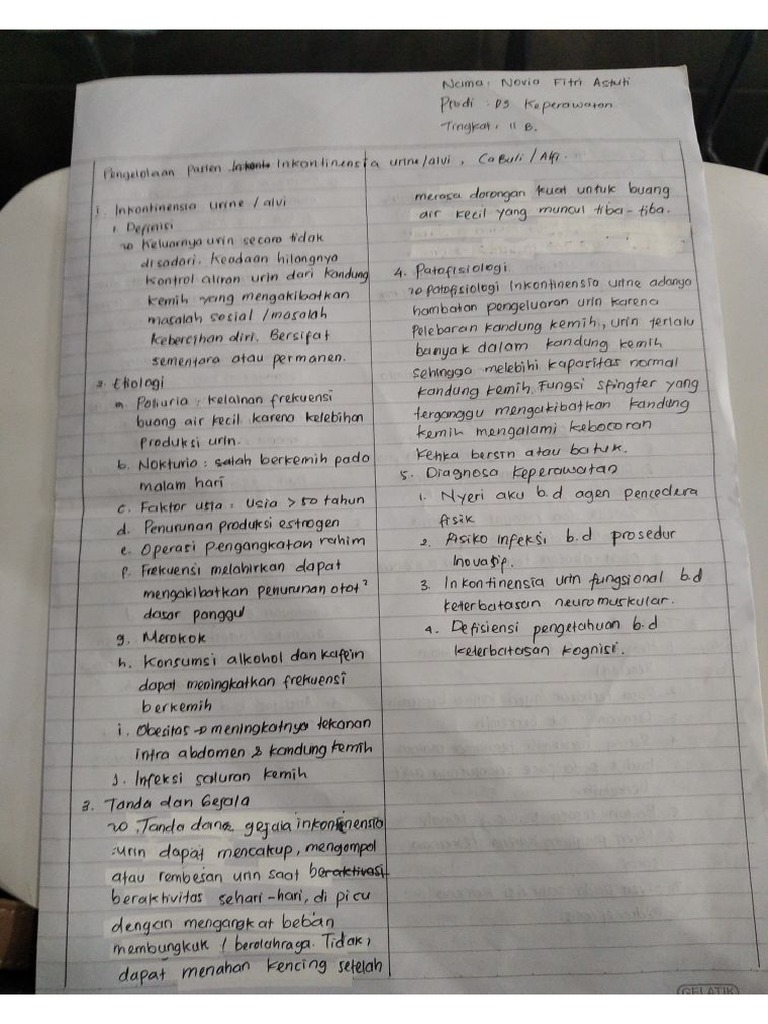 Nama: Novia Fitri Astuti
Prodi : D3 Keperawatan
Tingkat : II B.
Pengelolaan Pasien Inkontinensia urine/alvi,
1. Inkontinensia urine / alvi
1. Definisi
Keluarnya urin secara tidak
disadari. Keadaan hilangnya
kontrol aliran urin dari kandung
kemih yang mengakibatkan
masalah sosial / masalah
kebersihan diri. Bersifat
sementara atau permanen.
2. Etiologi
a. Poliuria : kelainan frekuensi
buang air kecil karena kelebihan
produksi urin.
b. Nokturia : salah berkemih pada
malam hari
c. Faktor usia : Usia > 50 tahun
d. Penurunan produksi estrogen
e. Operasi pengangkatan rahim
f. Frekuensi melahirkan dapat
mengakibatkan penurunan otot²
dasar panggul
g. Merokok
h. Konsumsi alkohol dan kafein
dapat meningkatkan frekuensi
berkemih
i. Obesitas → meningkatnya tekanan
intra abdomen & kandung kemih
j. Infeksi saluran kemih
3. Tanda dan Gejala
Tanda dan gejala inkontinensia
urin dapat mencakup, mengompol
atau rembesan urin saat beraktivasi
beraktivitas sehari-hari, di picu
dengan mengangkat beban
membungkuk / berolahraga. Tidak,
dapat menahan kencing setelah
merasa dorongan kuat untuk buang
air kecil yang muncul tiba-tiba.
4. Patofisiologi
Patofisiologi Inkontinensia urine adanya
hambatan pengeluaran urin karena
Pelebaran kandung kemih, urin terlalu
banyak dalam kandung kemih
sehingga melebihi kapasitas normal
kandung kemih. Fungsi spingter yang
terganggu mengakibatkan kandung
kemih mengalami kebocoran
ketika bersin atau batuk.
5. Diagnosa keperawatan
1. Nyeri aku b.d agen pencedera
fisik
2. Risiko infeksi b.d prosedur
Inovasip.
3. Inkontinensia urin fungsional b.d
keterbatasan neuromuskular.
4. Defisiensi pengetahuan b.d
keterbatasan kognisi.
GELATIK